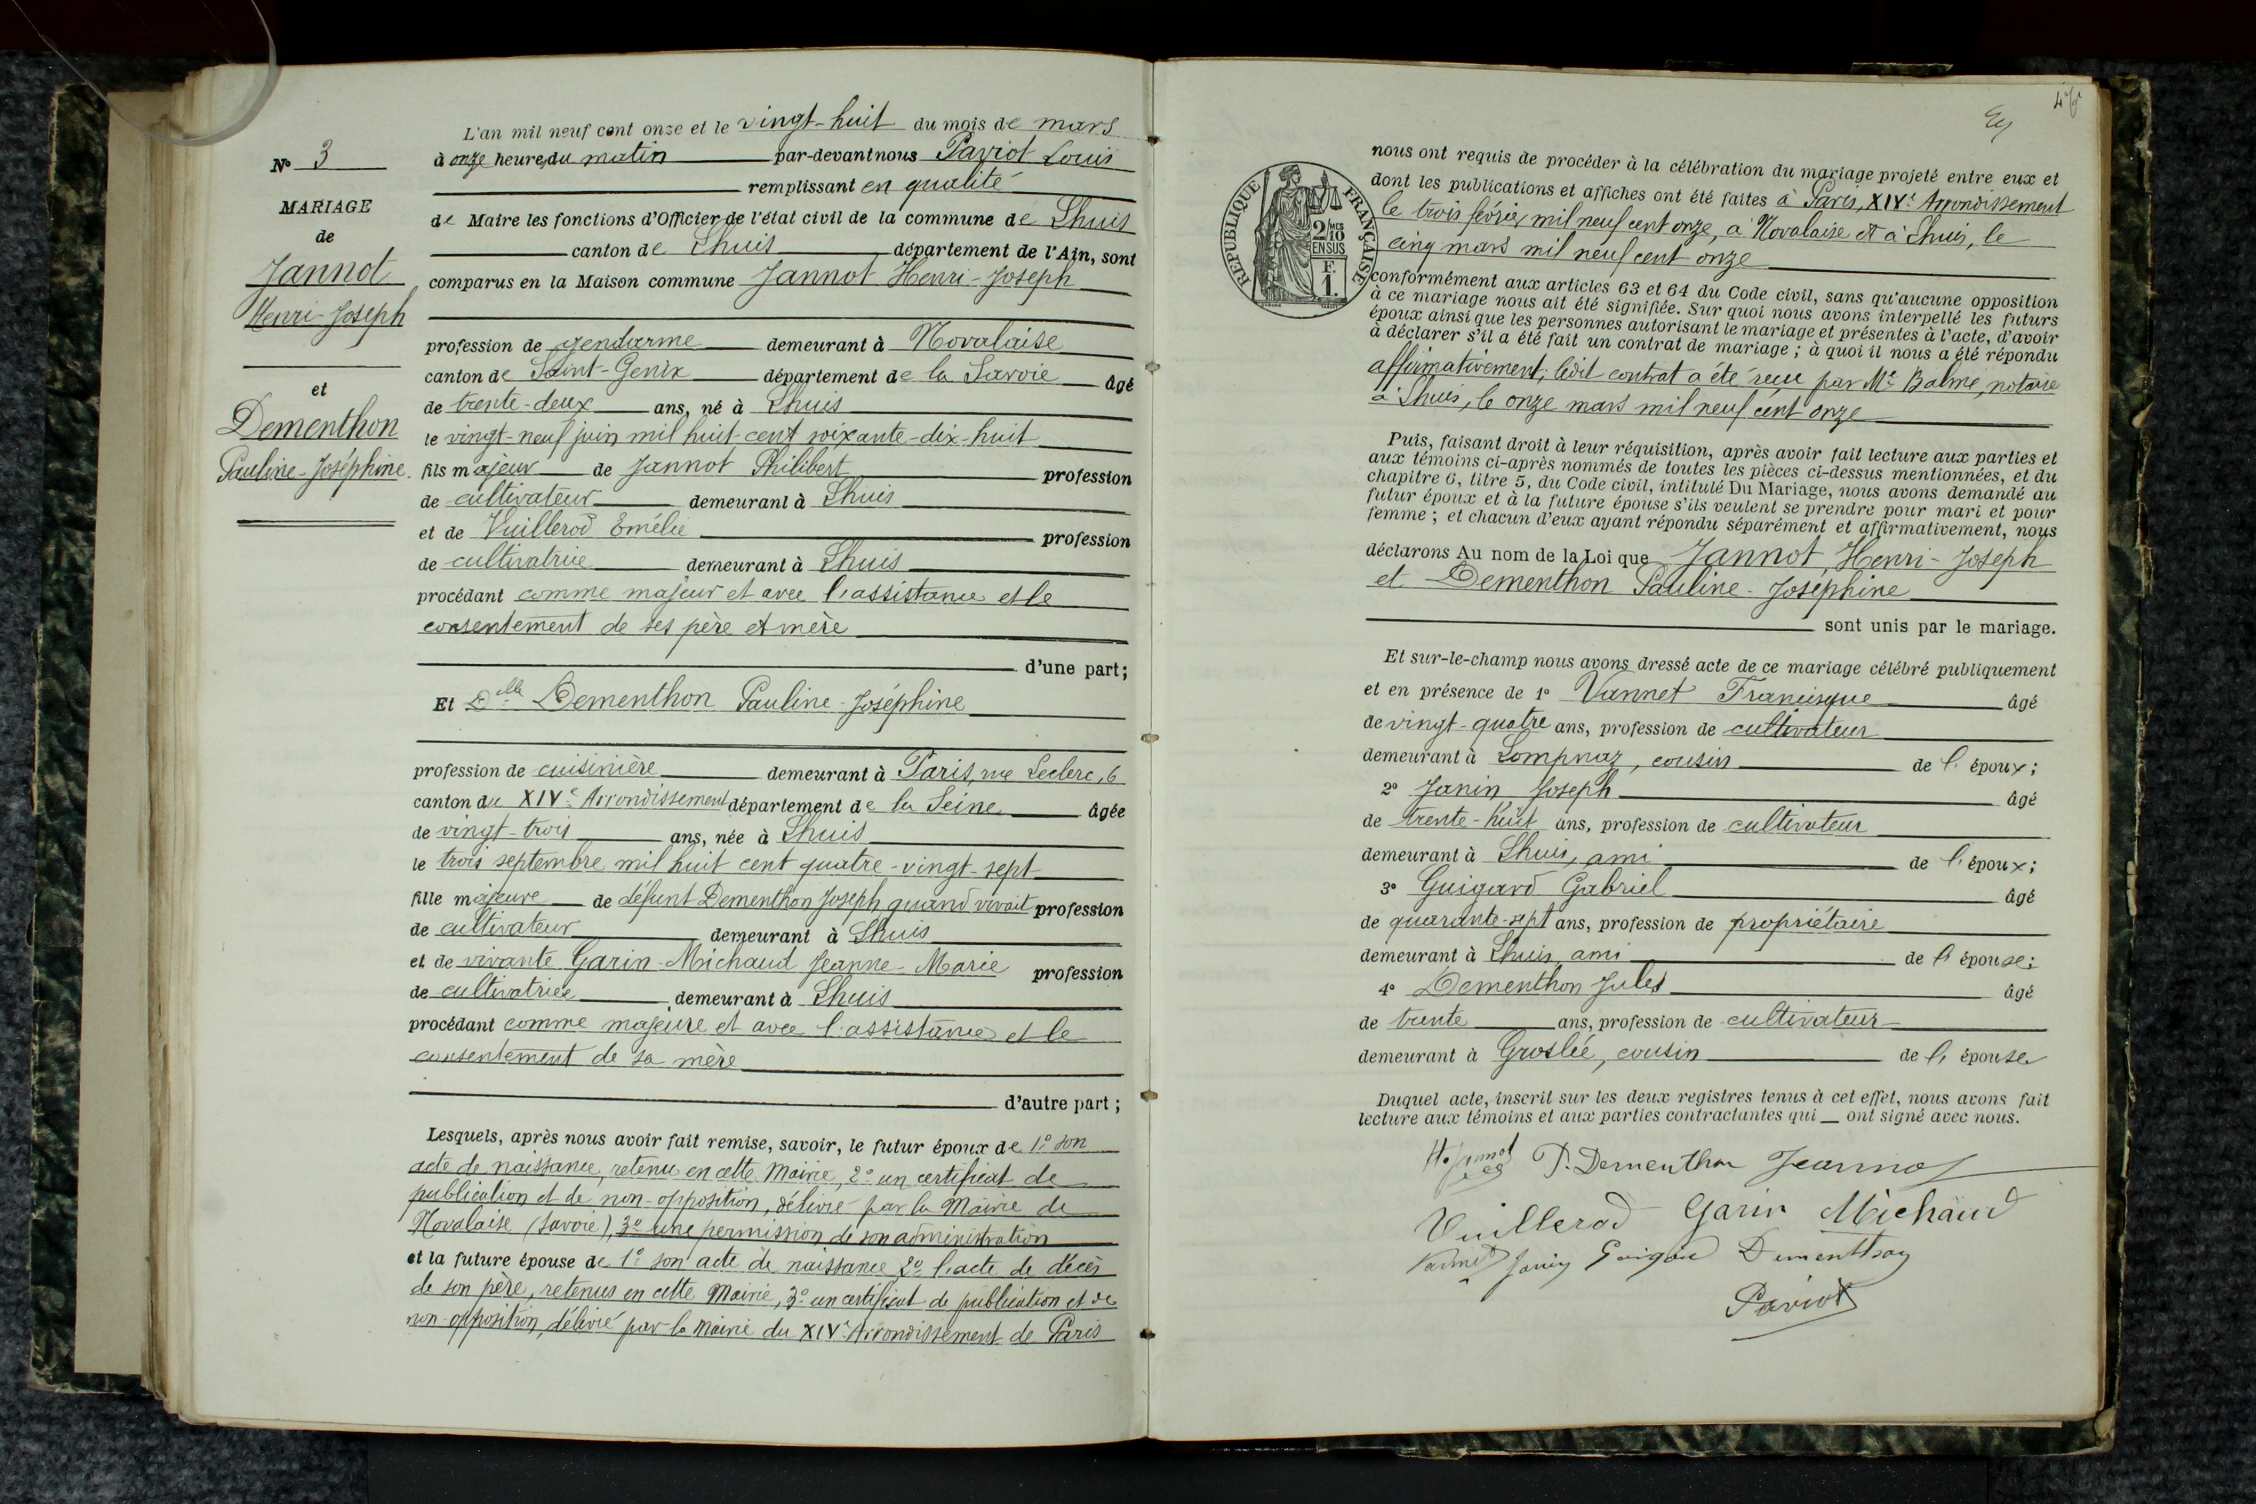 L'an mil neuf cent onze et le vingt-huit du mois de mars
N° 3
à onze heures du matin par-devant nous Paviot Louis
remplissant en qualité
MARIAGE
de Maire les fonctions d'Officier de l'état civil de la commune de Lhuis
de
canton de Lhuis département de l'Ain, sont
Jannot
comparus en la Maison commune Jannot Henri-Joseph
Henri-Joseph
profession de gendarme demeurant à Novalaise
canton de Saint-Genix département de la Savoie âgé
et
de trente-deux ans, né à Lhuis
Dementhon
le vingt-neuf juin mil huit cent soixante-dix-huit
Pauline-Joséphine.
fils majeur de Jannot Philibert profession
de cultivateur demeurant à Lhuis
et de Vuillerod Emélie profession
de cultivatrice demeurant à Lhuis
procédant comme majeur et avec l'assistance et le
consentement de ses père et mère
d'une part;
Et Dlle Dementhon Pauline-Joséphine
profession de cuisinière demeurant à Paris, rue Leclerc, 6
canton du XIVe Arrondissement département de la Seine âgée
de vingt-trois ans, née à Lhuis
le trois septembre mil huit cent quatre-vingt-sept
fille majeure de défunt Dementhon Joseph quand vivait profession
de cultivateur demeurant à Lhuis
et de vivante Garin-Michaud Jeanne-Marie profession
de cultivatrice demeurant à Lhuis
procédant comme majeure et avec l'assistance et le
consentement de sa mère
d'autre part;
Lesquels, après nous avoir fait remise, savoir, le futur époux de 1° son
acte de naissance, retenu en cette Mairie, 2° un certificat de
publication et de non-opposition, délivré par la Mairie de
Novalaise (Savoie), 3° une permission de son administration
et la future épouse de 1° son acte de naissance 2° l'acte de décès
de son père, retenus en cette Mairie, 3° un certificat de publication et de
non-opposition, délivré par la Mairie du XIVe Arrondissement de Paris
nous ont requis de procéder à la célébration du mariage projeté entre eux et
dont les publications et affiches ont été faites à Paris, XIVe Arrondissement
le trois février mil neuf cent onze, à Novalaise et à Lhuis, le
cinq mars mil neuf cent onze
REPUBLIQUE FRANÇAISE
2/10 MES EN SUS
F. 1.
conformément aux articles 63 et 64 du Code civil, sans qu'aucune opposition
à ce mariage nous ait été signifiée. Sur quoi nous avons interpellé les futurs
époux ainsi que les personnes autorisant le mariage et présentes à l'acte, d'avoir
à déclarer s'il a été fait un contrat de mariage; à quoi il nous a été répondu
affirmativement; ledit contrat a été reçu par Me Balme, notaire
à Lhuis, le onze mars mil neuf cent onze
Puis, faisant droit à leur réquisition, après avoir fait lecture aux parties et
aux témoins ci-après nommés de toutes les pièces ci-dessus mentionnées, et du
chapitre 6, titre 5, du Code civil, intitulé Du Mariage, nous avons demandé au
futur époux et à la future épouse s'ils veulent se prendre pour mari et pour
femme; et chacun d'eux ayant répondu séparément et affirmativement, nous
déclarons Au nom de la Loi que Jannot, Henri-Joseph
et Dementhon Pauline-Joséphine
sont unis par le mariage.
Et sur-le-champ nous avons dressé acte de ce mariage célébré publiquement
et en présence de 1° Vannet Francisque âgé
de vingt-quatre ans, profession de cultivateur
demeurant à Lompnaz, cousin de l'époux;
2° Janin Joseph âgé
de trente-huit ans, profession de cultivateur
demeurant à Lhuis, ami de l'époux;
3° Guigard Gabriel âgé
de quarante-sept ans, profession de propriétaire
demeurant à Lhuis, ami de l'épouse;
4° Dementhon Jules âgé
de trente ans, profession de cultivateur
demeurant à Groslée, cousin de l'épouse
Duquel acte, inscrit sur les deux registres tenus à cet effet, nous avons fait
lecture aux témoins et aux parties contractantes qui ont signé avec nous.
H. Jannot P. Dementhon Jeannot
Vuillerod Garin Michaud
Vannet Janin Guigard Dementhon
Paviot